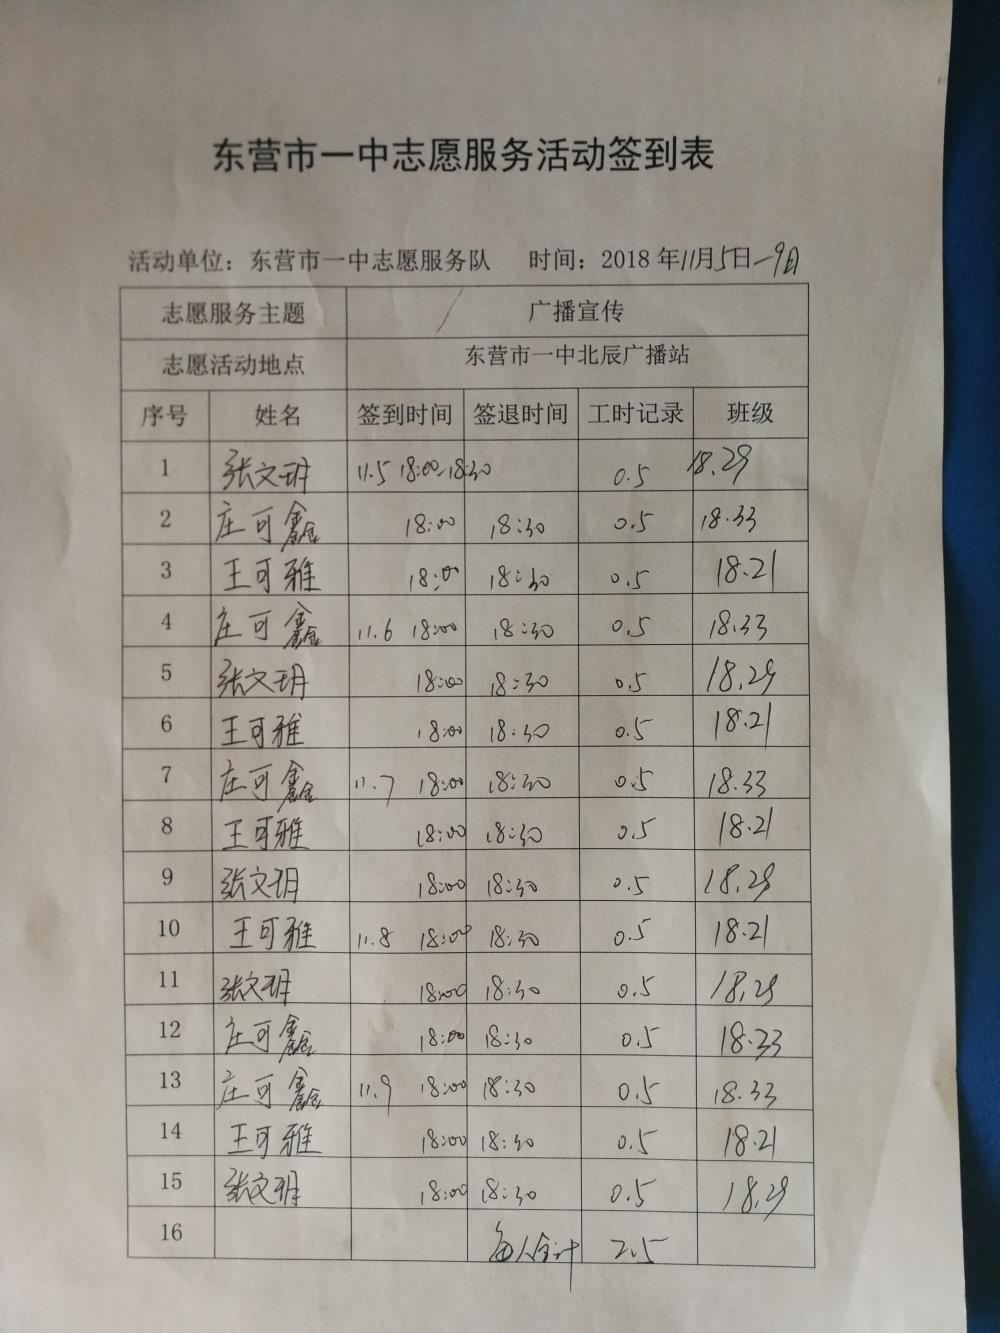 东营市一中志愿服务活动签到表
活动单位：东营市一中志愿服务队 时间：2018年11月5日-9日
志愿服务主题 / 广播宣传
志愿活动地点 东营市一中北辰广播站
序号 姓名 签到时间 签退时间 工时记录 班级
1 张文玥 11.5 18:00-18:30 0.5 18.29
2 庄可鑫 18:00 18:30 0.5 18.33
3 王可雅 18:00 18:30 0.5 18.21
4 庄可鑫 11.6 18:00 18:30 0.5 18.33
5 张文玥 18:00 18:30 0.5 18.29
6 王可雅 18:00 18:30 0.5 18.21
7 庄可鑫 11.7 18:00 18:30 0.5 18.33
8 王可雅 18:00 18:30 0.5 18.21
9 张文玥 18:00 18:30 0.5 18.29
10 王可雅 11.8 18:00 18:30 0.5 18.21
11 张文玥 18:00 18:30 0.5 18.29
12 庄可鑫 18:00 18:30 0.5 18.33
13 庄可鑫 11.9 18:00 18:30 0.5 18.33
14 王可雅 18:00 18:30 0.5 18.21
15 张文玥 18:00 18:30 0.5 18.29
16 每人合计 2.5